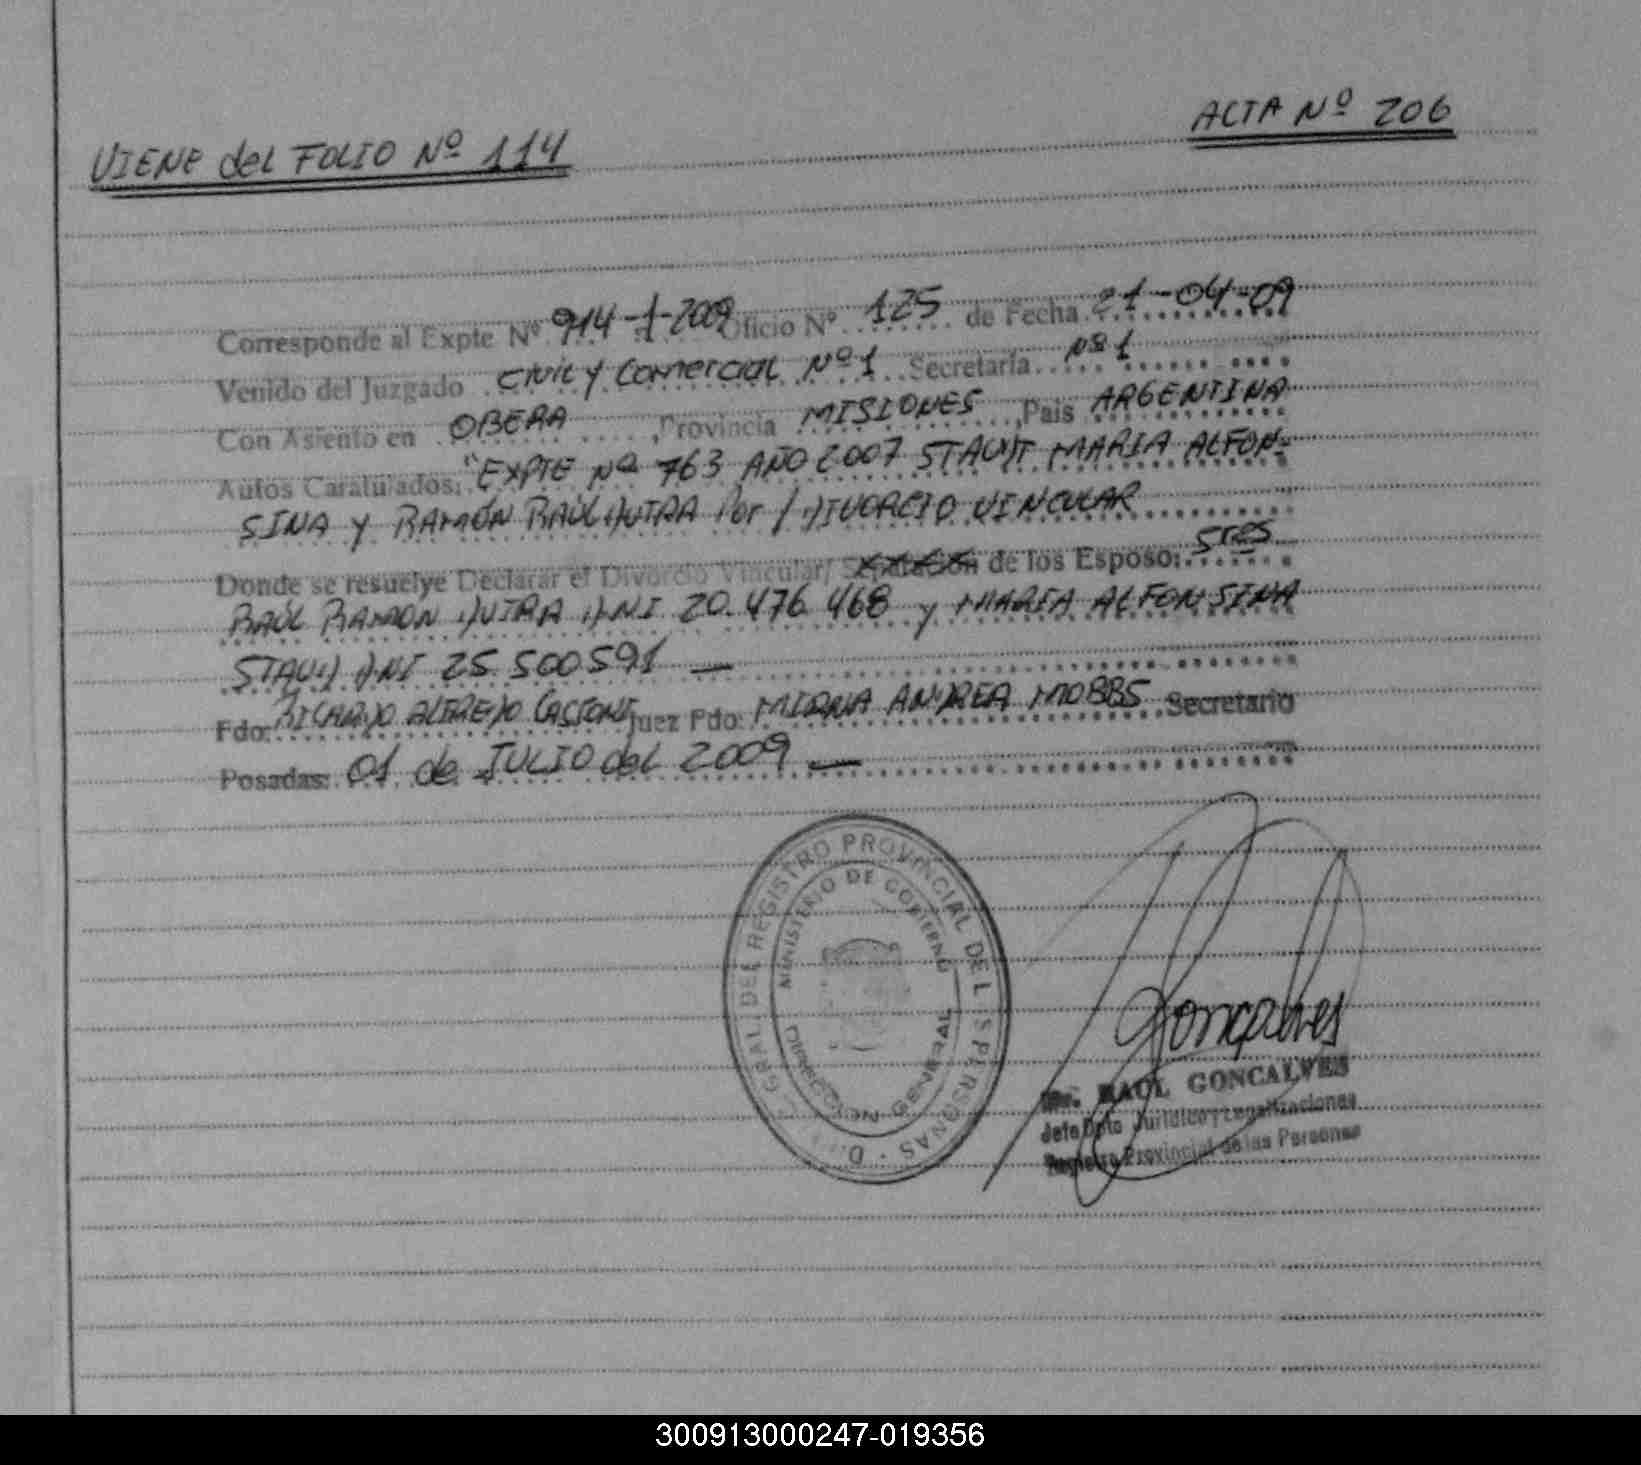 VIENE del FOLIO Nº 114
ACTA Nº 206
Corresponde al Expte Nº 914-1-2009 Oficio Nº 125 de Fecha 21-04-09
Venido del Juzgado Civil y Comercial Nº 1 Secretaría Nº 1
Con Asiento en OBERA, Provincia MISIONES, País ARGENTINA
Autos Caratulados: "EXPTE Nº 763 AÑO 2007 MARIA ALFON-
SINA y RAMÓN RAÚL DUTRA Por / DIVORCIO VINCULAR
Donde se resuelve Declarar el Divorcio Vincular/ Separación de los Esposo: Sres
RAÚL RAMON DUTRA DNI 20.476.468 y MARIA ALFONSINA
DNI 25.500591 —
Fdo: RICARDO ALFREDO CASSONI Juez Fdo: MIRNA ANDREA MOBBS Secretario
Posadas: 01 de JULIO del 2009 —
GRAL DEL REGISTRO PROVINCIAL DE LAS PERSONAS
MINISTERIO DE GOBIERNO
DIRECCION GENERAL
Gonçalves
RAUL GONCALVES
Jefe Dpto Jurídico y Legalizaciones
Registro Provincial de las Personas
300913000247-019356